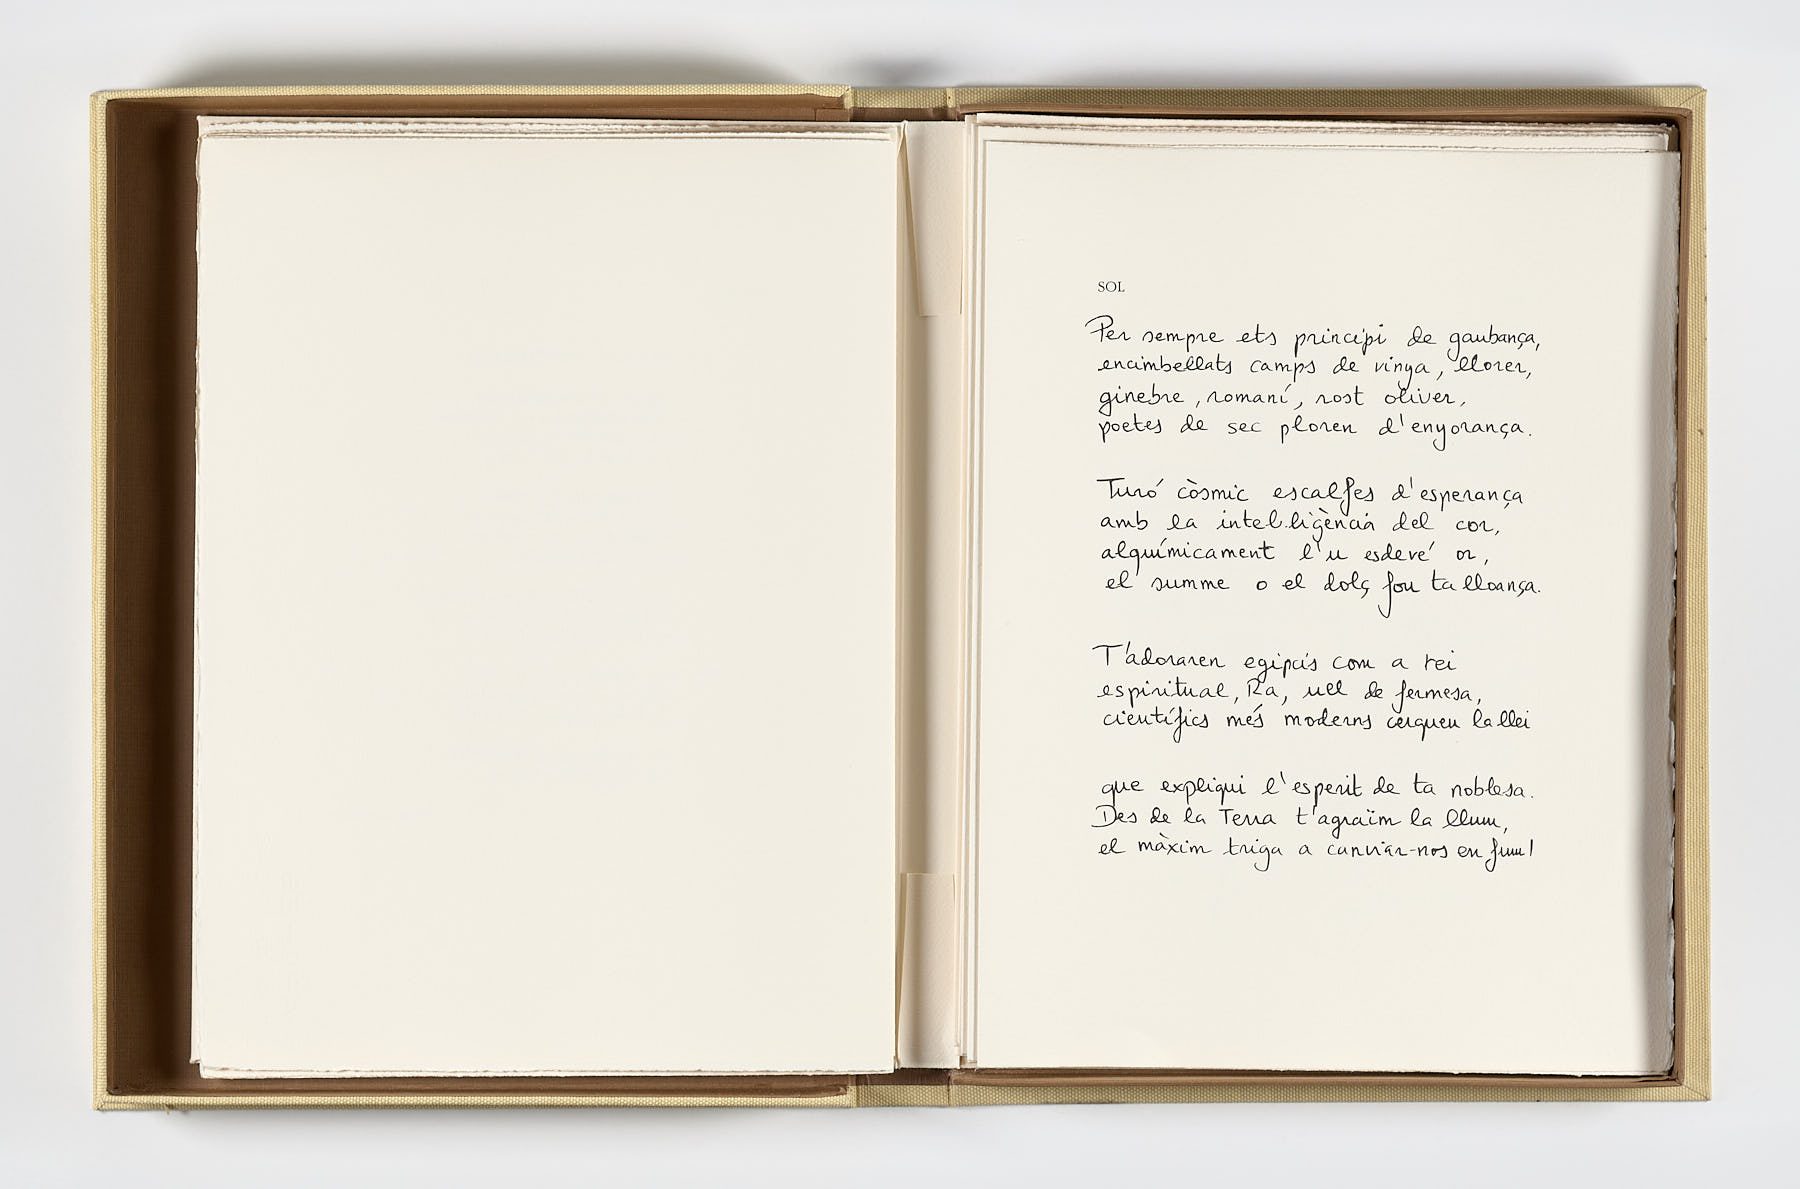 SOL
Per sempre ets principi de gaubança,
encimbellats camps de vinya, llorer,
ginebre, romaní, rost oliver,
poetes de sec ploren d'enyorança.
Turó còsmic escalfes d'esperança
amb la intel·ligència del cor,
alquímicament l'u esdevé or,
el summe o el dolç fou ta lloança.
T'adoraren egipcis com a rei
espiritual, Ra, ull de fermesa,
científics més moderns cerqueu la llei
que expliqui l'esperit de ta noblesa.
Des de la Terra t'agraïm la llum,
el màxim triga a canviar-nos en fum!